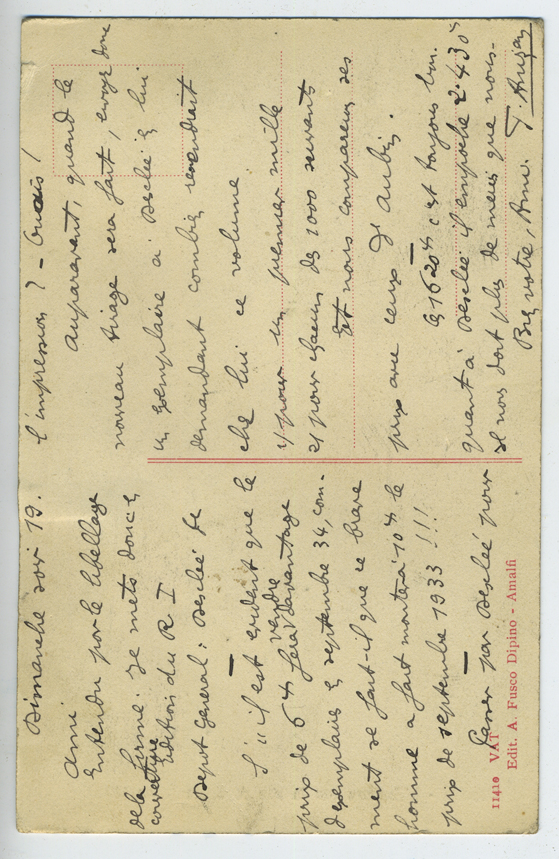 Dimanche soir 19.
ami
Entendu pour le libellage
de la forme. Je mets donc
couverture édition du R I
Depot General : Desclée De
S'il est evident que le
prix de 6 fera vendre davantage
d'exemplaires septembre 34, com-
ment se fait-il que ce brave
homme a fait monter à 10 le
prix de septembre 1933 !!!
Passer par Desclée pour
l'impression ? -
auparavant, quand le
nouveau tirage sera fait, envoyez donc
un exemplaire à Desclée lui
demandant combien reviendrait
chez lui ce volume
1/ pour un premier mille
2/ pour chacun des 1000 suivants
Et nous comparerons ses
prix avec ceux d'Aubin.
à 1620 c'est toujours bon.
quant à Desclée il empoche 2.430
et nous doit plus de que nous.
Bien votre, Ami.
11410 VAT
Edit. A. Fusco Dipino - Amalfi